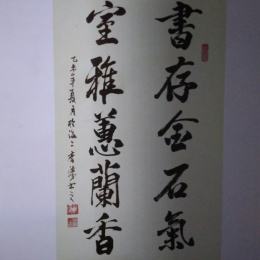 書存金石氣
室雅蕙蘭香
乙未年夏月於滬上書